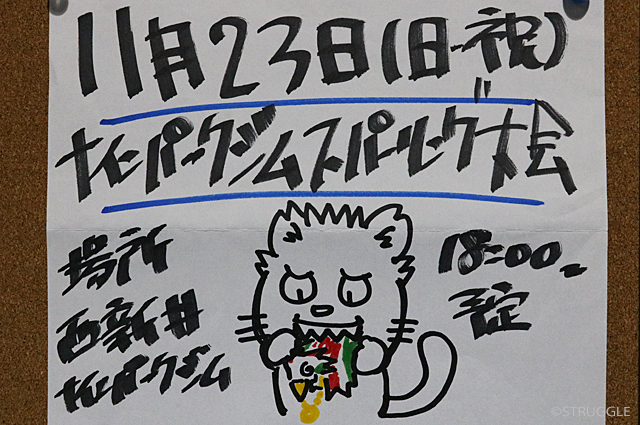 11月23日(日・祝)
ナインパークジムスパーリング大会
場所
西新井
ナインパークジム
18:00~
予定
©STRUGGLE